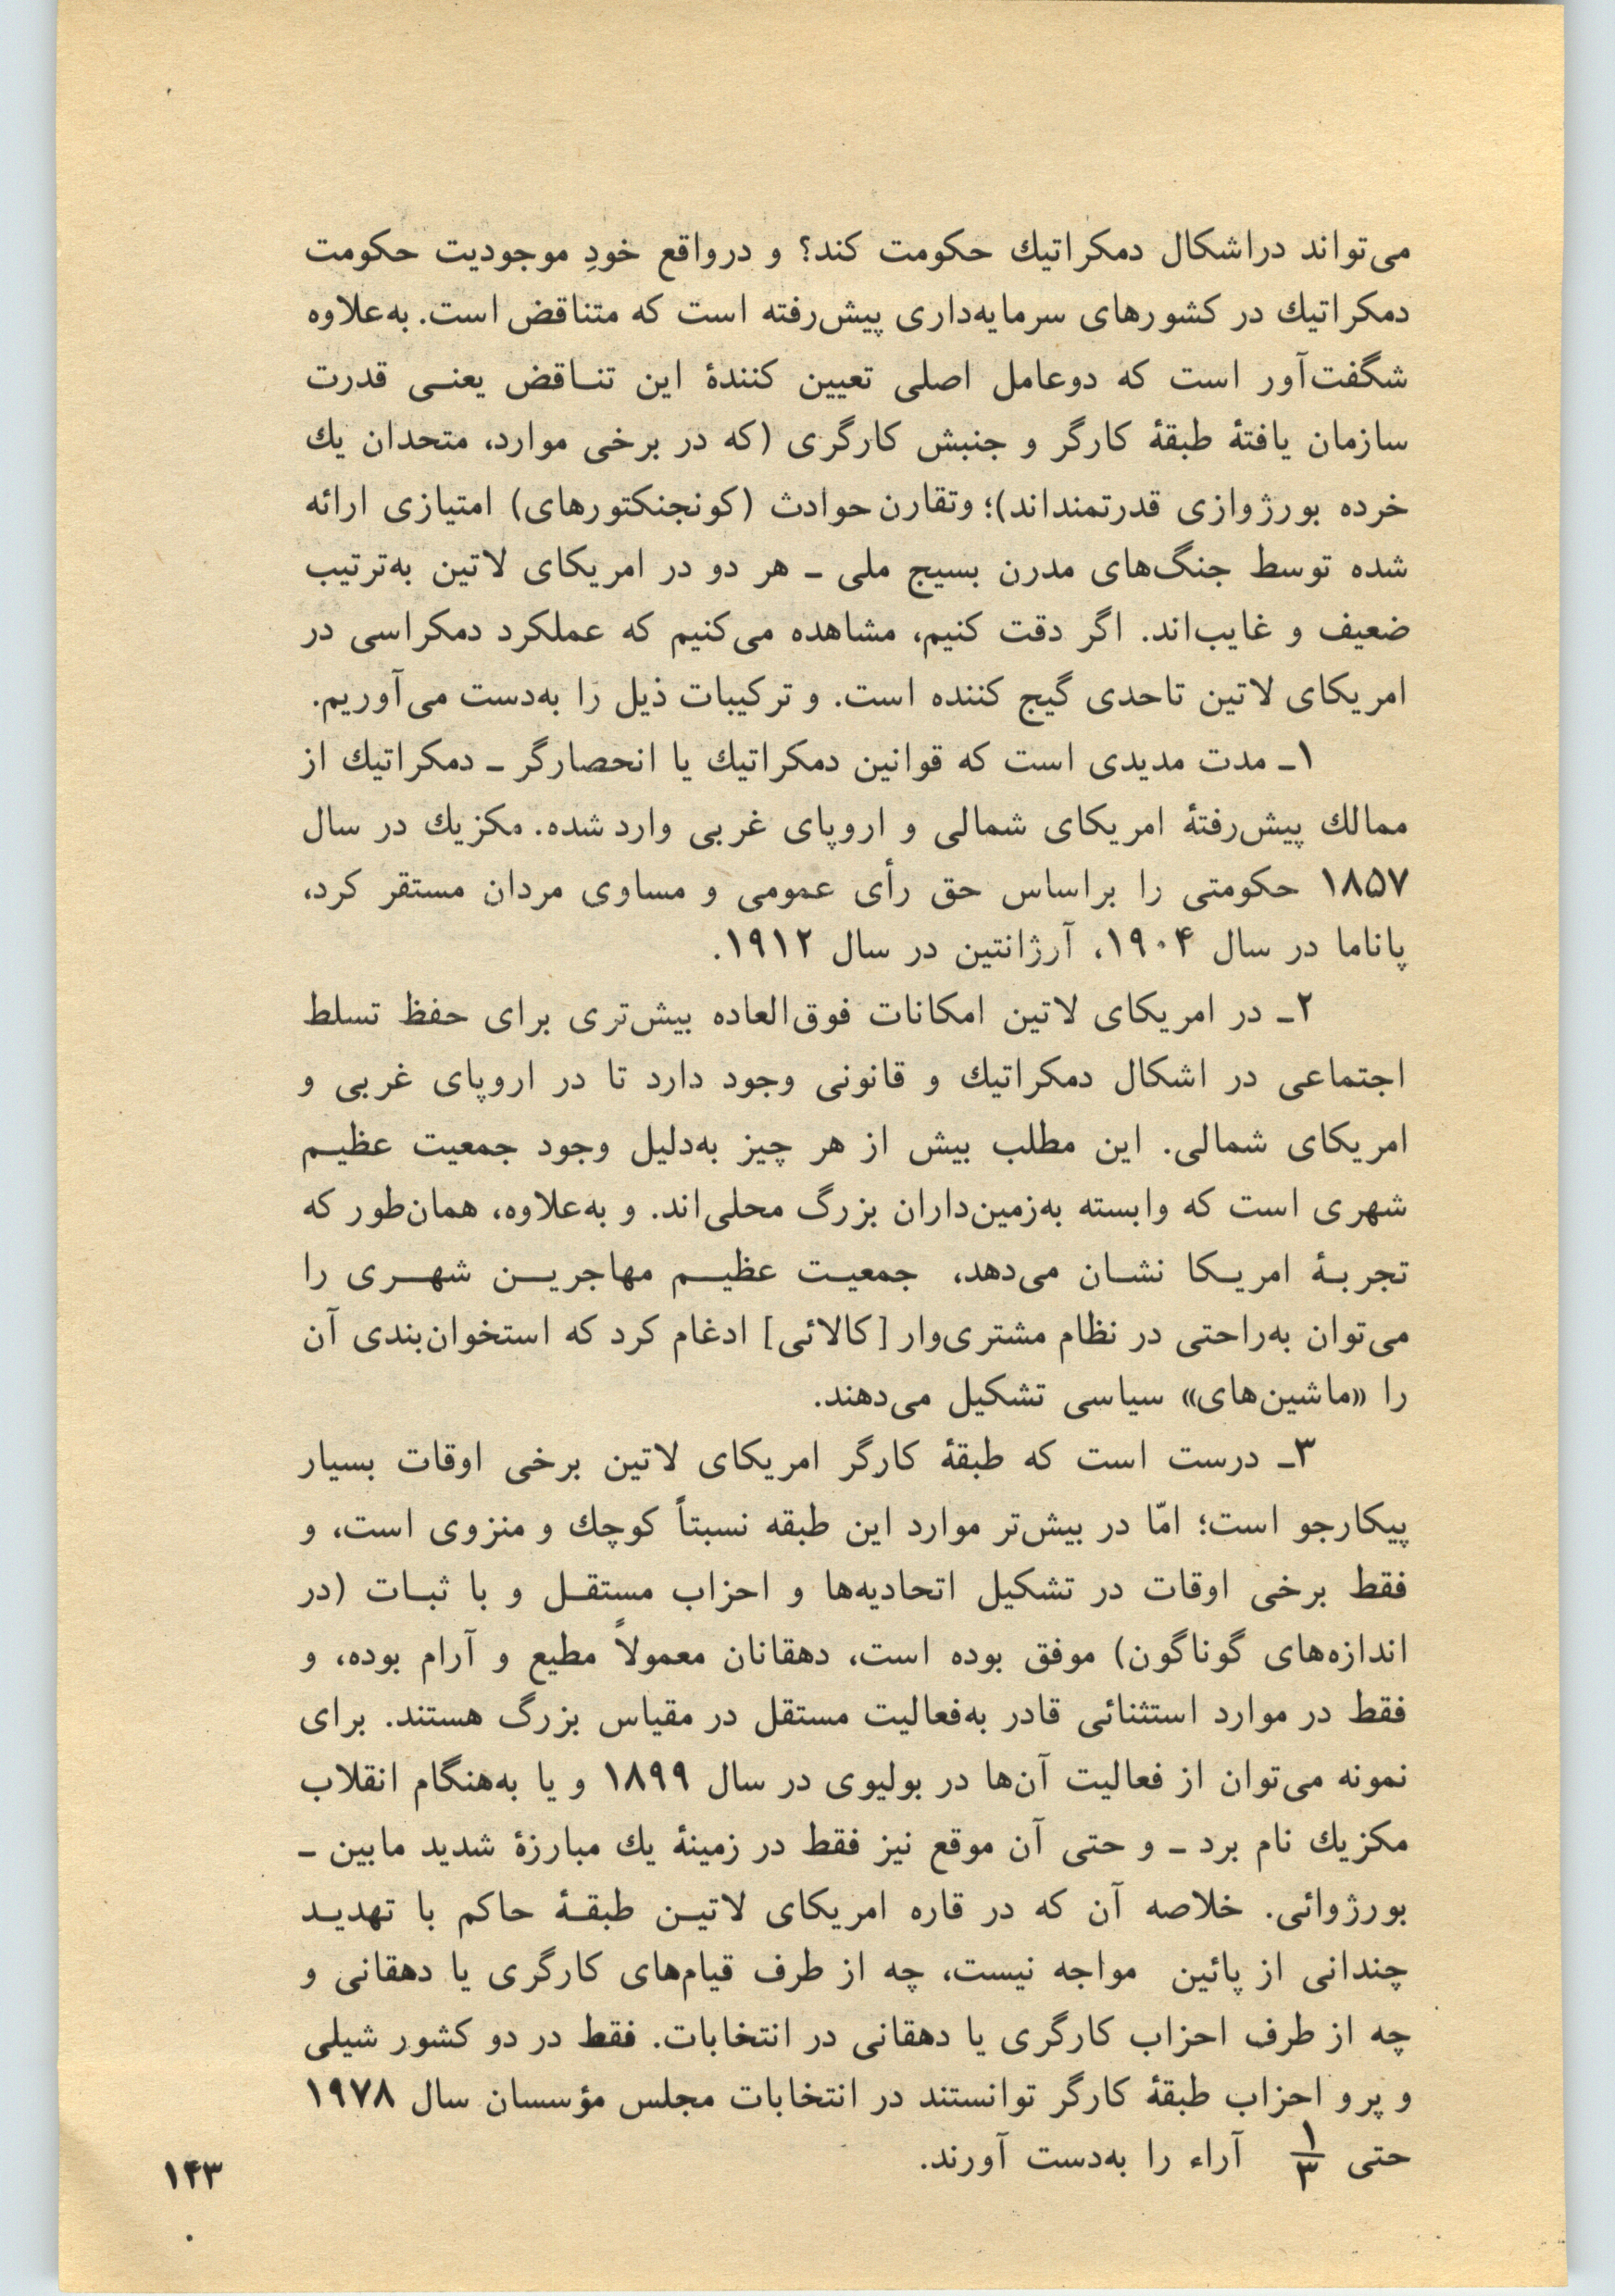 می‌تواند دراشکال دمکراتیك حکومت کند؟ و درواقع خودِ موجودیت حکومت
دمکراتیك در کشورهای سرمایه‌داری پیش‌رفته است که متناقض است. به‌علاوه
شگفت‌آور است که دوعامل اصلی تعیین کنندهٔ این تنـاقض یعنـی قدرت
سازمان یافتهٔ طبقهٔ کارگر و جنبش کارگری (که در برخی موارد، متحدان یك
خرده بورژوازی قدرتمنداند)؛ وتقارن حوادث (کونجنکتورهای) امتیازی ارائه
شده توسط جنگ‌های مدرن بسیج ملی ـ هر دو در امریکای لاتین به‌ترتیب
ضعیف و غایب‌اند. اگر دقت کنیم، مشاهده می‌کنیم که عملکرد دمکراسی در
امریکای لاتین تاحدی گیج کننده است. و ترکیبات ذیل را به‌دست می‌آوریم.
۱ـ مدت مدیدی است که قوانین دمکراتیك یا انحصارگر ـ دمکراتیك از
ممالك پیش‌رفتهٔ امریکای شمالی و اروپای غربی وارد شده. مکزیك در سال
۱۸۵۷ حکومتی را براساس حق رأی عمومی و مساوی مردان مستقر کرد،
پاناما در سال ۱۹۰۴، آرژانتین در سال ۱۹۱۲.
۲ـ در امریکای لاتین امکانات فوق‌العاده بیش‌تری برای حفظ تسلط
اجتماعی در اشکال دمکراتیك و قانونی وجود دارد تا در اروپای غربی و
امریکای شمالی. این مطلب بیش از هر چیز به‌دلیل وجود جمعیت عظیـم
شهری است که وابسته به‌زمین‌داران بزرگ محلی‌اند. و به‌علاوه، همان‌طور که
تجربـهٔ امریـکا نشـان می‌دهد، جمعیـت عظیـم مهاجریـن شهـری را
می‌توان به‌راحتی در نظام مشتری‌وار [کالائی] ادغام کرد که استخوان‌بندی آن
را «ماشین‌های» سیاسی تشکیل می‌دهند.
۳ـ درست است که طبقهٔ کارگر امریکای لاتین برخی اوقات بسیار
پیکارجو است؛ امّا در بیش‌تر موارد این طبقه نسبتاً کوچك و منزوی است، و
فقط برخی اوقات در تشکیل اتحادیه‌ها و احزاب مستقـل و با ثبـات (در
اندازه‌های گوناگون) موفق بوده است، دهقانان معمولاً مطیع و آرام بوده، و
فقط در موارد استثنائی قادر به‌فعالیت مستقل در مقیاس بزرگ هستند. برای
نمونه می‌توان از فعالیت آن‌ها در بولیوی در سال ۱۸۹۹ و یا به‌هنگام انقلاب
مکزیك نام برد ـ و حتی آن موقع نیز فقط در زمینهٔ یك مبارزهٔ شدید مابین ـ
بورژوائی. خلاصه آن که در قاره امریکای لاتیـن طبقـهٔ حاکم با تهدیـد
چندانی از پائین مواجه نیست، چه از طرف قیام‌های کارگری یا دهقانی و
چه از طرف احزاب کارگری یا دهقانی در انتخابات. فقط در دو کشور شیلی
و پرو احزاب طبقهٔ کارگر توانستند در انتخابات مجلس مؤسسان سال ۱۹۷۸
حتی ۱/۳ آراء را به‌دست آورند.
۱۴۳